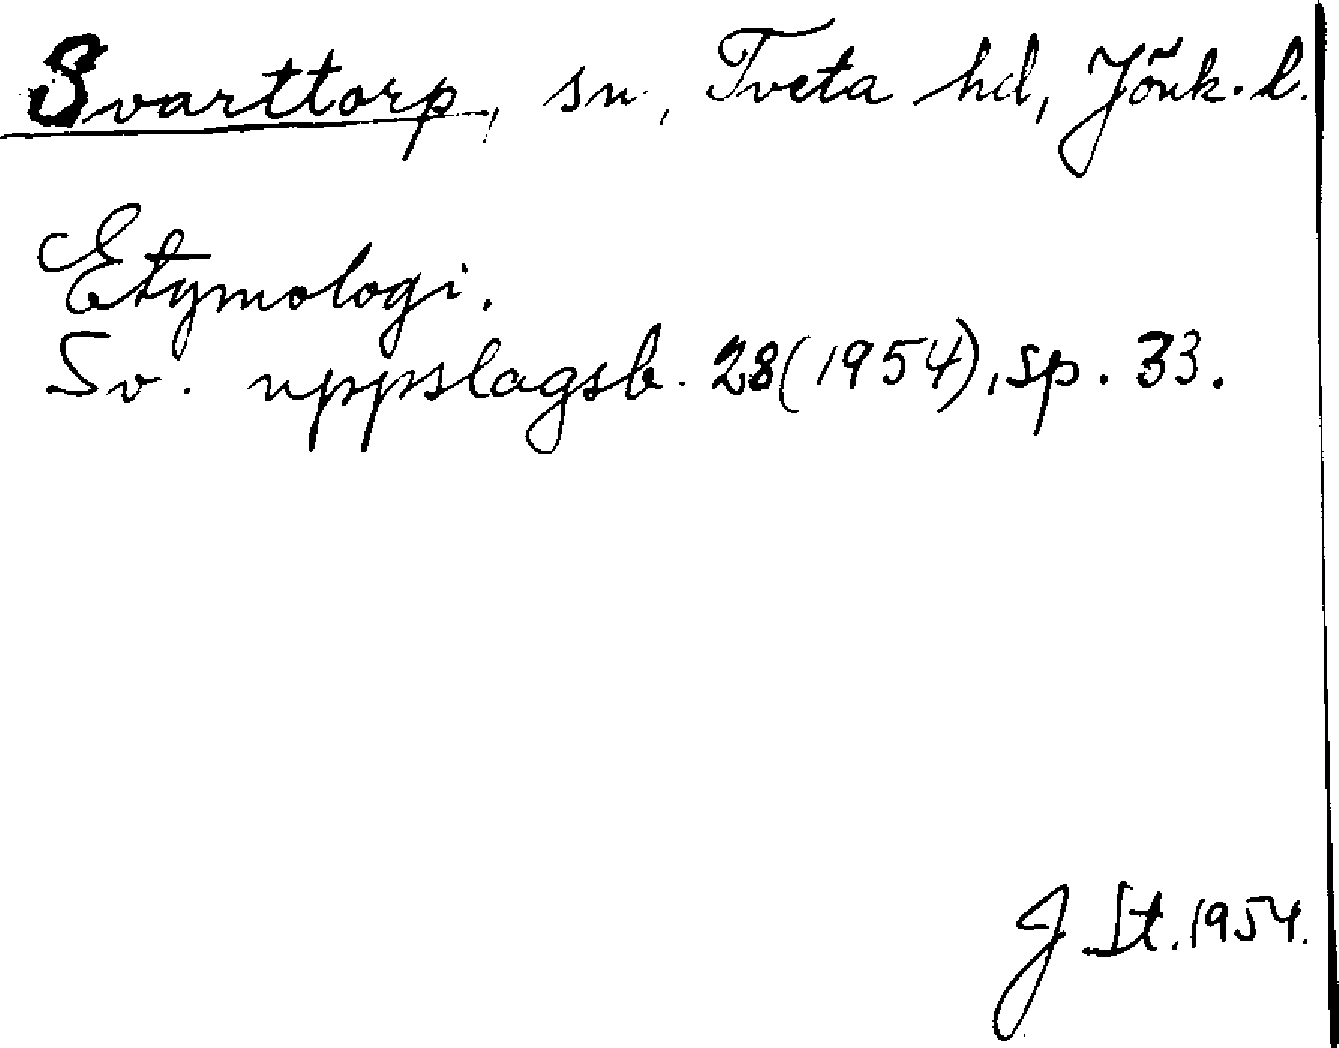 Svarttorp, sn, Tveta hd, Jönk. l.
Etymologi.
Sv. uppslagsb. 28(1954), sp. 33.
J St. 1954.